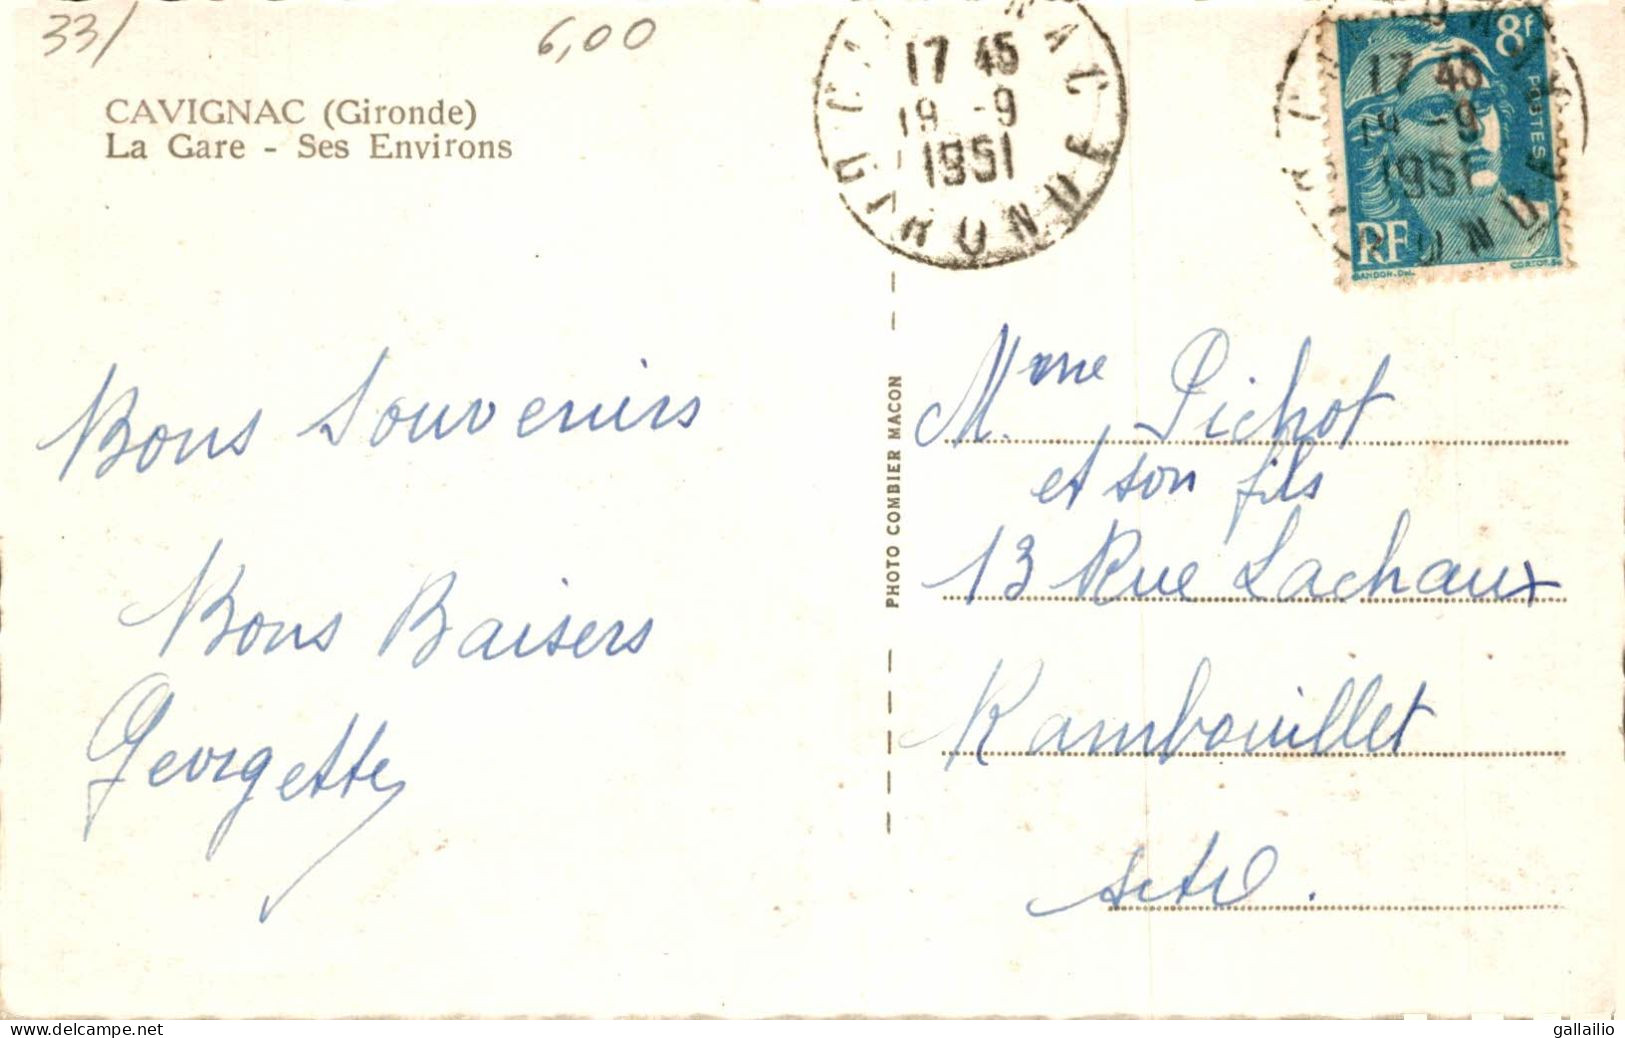 33/
6,00
CAVIGNAC (Gironde)
La Gare - Ses Environs
17 45
19 -9
1951
GIRONDE
17 45
19 -9
1951
8f
POSTES
RF
GANDON.Del.
Bons Souvenirs
Bons Baisers
Georgette
PHOTO COMBIER MACON
Mme Pichot
et son fils
13 Rue Lachaux
Rambouillet
delcampe.net
gallailio